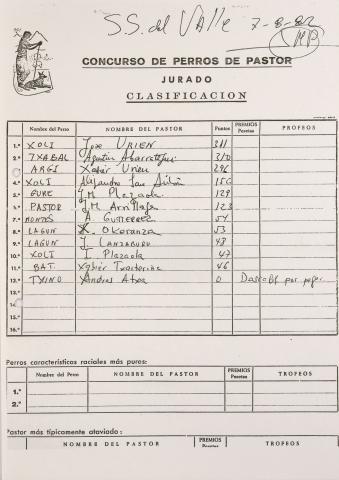 S.S. del Valle 7-8-82
CONCURSO DE PERROS DE PASTOR
JURADO
CLASIFICACION
Nombre del Perro NOMBRE DEL PASTOR Puntos PREMIOS Pesetas TROFEOS
1.º XOLI Jose URIEN 311
2.º TXABAL Agustin 310
3.º ARGI Xabier Urien 296
4.º XOLI Alejandro San 156
5.º GURE J.M. Plazaola 129
6.º PASTOR J.M. Arrillaga 123
7.º MONTES A. GUTIERREZ 54
8.º LAGUN K. OKERANZA 53
9.º LAGUN J. LANZABURU 48
10.º XOLI I. Plazaola 47
11.º BAT Xabier 46
12.º TXINO Andres Atxa 0 Descalif por pegar
13.º
14.º
15.º
16.º
Perros características raciales más puras:
Nombre del Perro NOMBRE DEL PASTOR PREMIOS Pesetas TROFEOS
1.º
2.º
Pastor más típicamente ataviado:
NOMBRE DEL PASTOR PREMIOS Pesetas TROFEOS